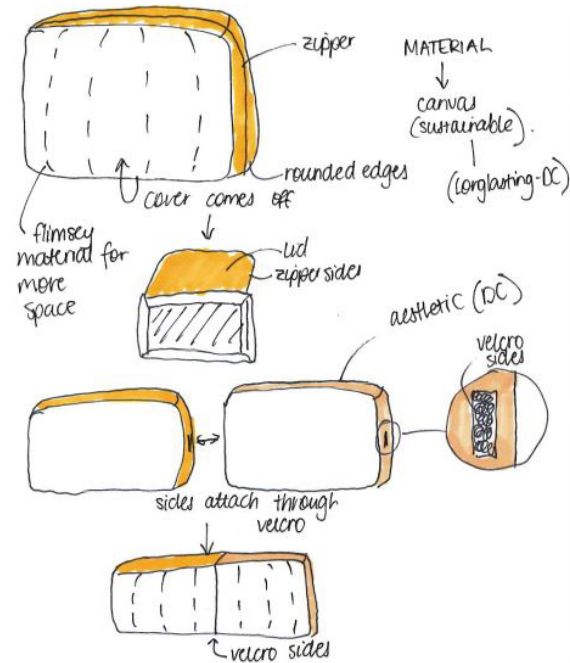 zipper
MATERIAL
canvas
(sustainable).
(longlasting-DC)
rounded edges
cover comes off
flimsey
material for
more
space
lid
zipper sides
aesthetic (DC)
velcro
sides
sides attach through
velcro
velcro sides